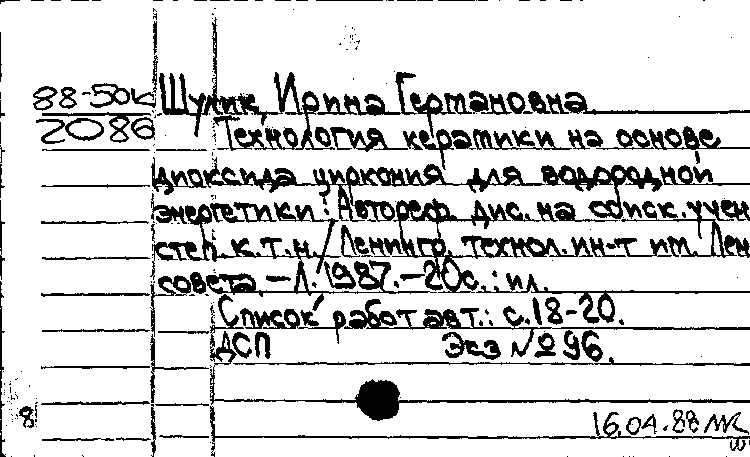 88-50к Шулик, Ирина Германовна
2086 Технология керамики на основе
диоксида циркония для водородной
энергетики : Автореф. дис. на соиск. учен
степ. к.т.н. / Ленингр. технол. ин-т им. Лен
совета. - Л. 1987. - 20с. : ил.
Список работ авт.: с. 18-20.
ДСП Экз № 96.
8
16.04.88